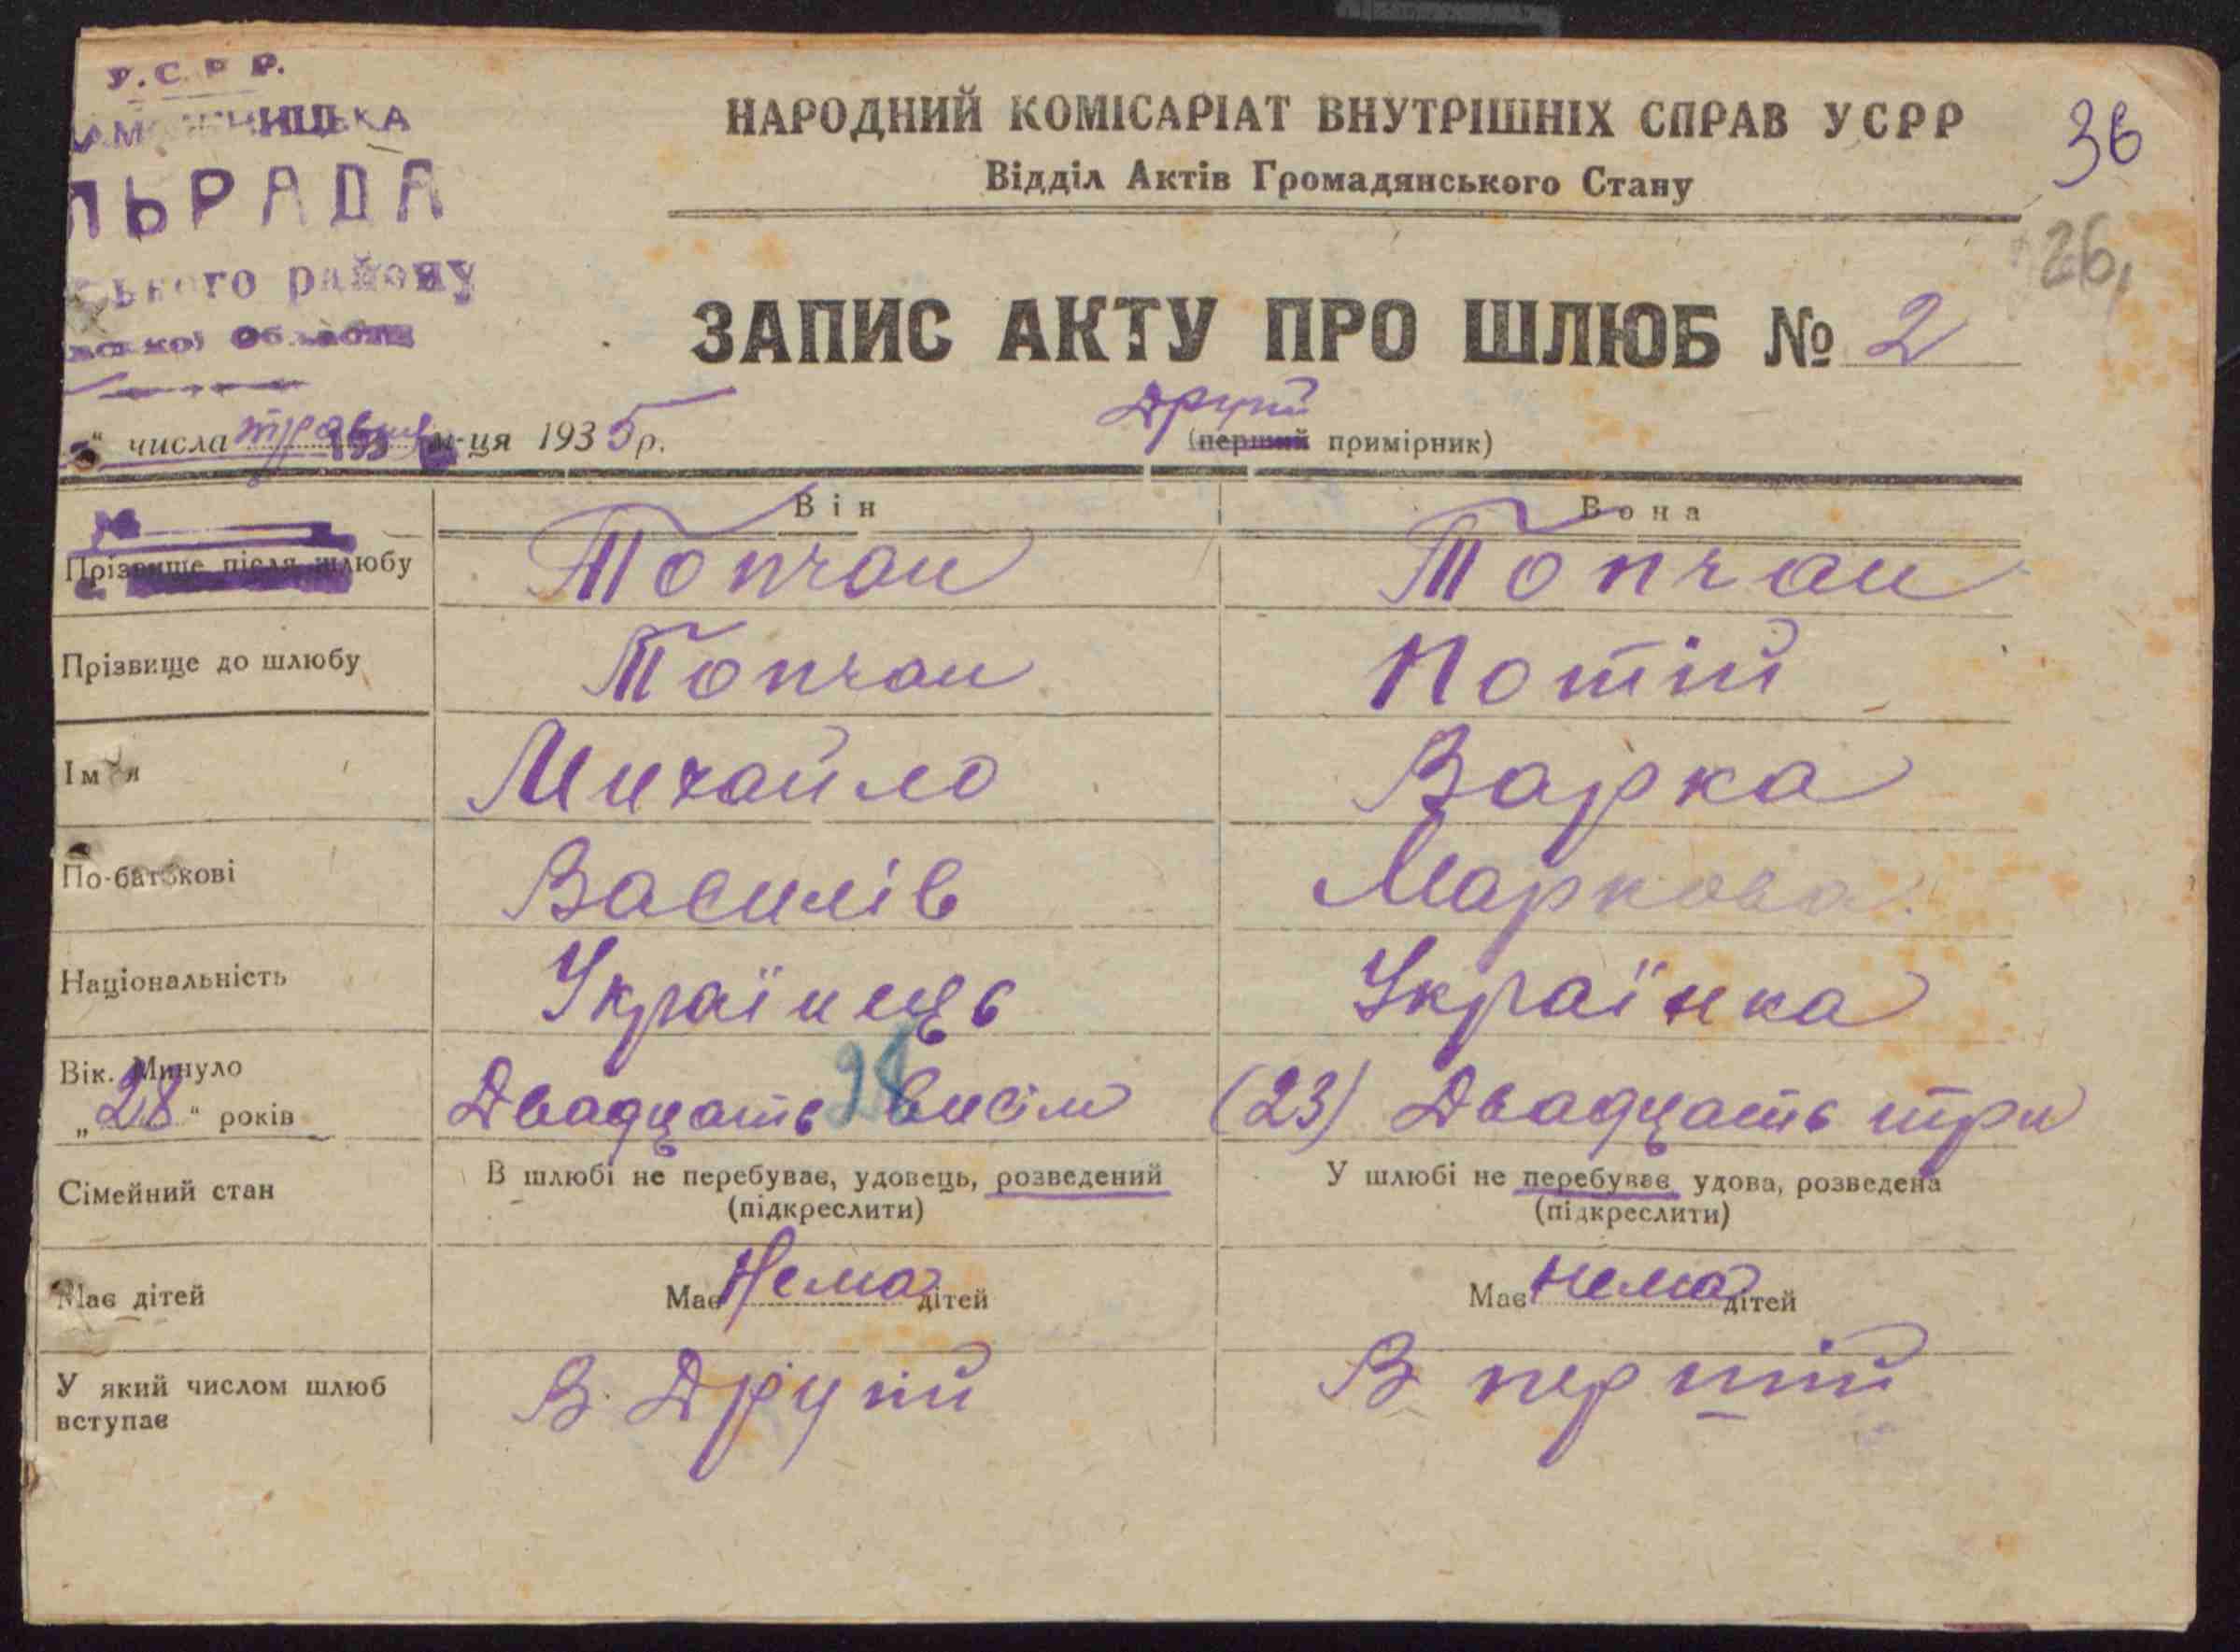 У.С.Р.Р.
ЛЬРАДА
ського району
НАРОДНИЙ КОМІСАРІАТ ВНУТРІШНІХ СПРАВ УСРР
36
Відділ Актів Громадянського Стану
26
ЗАПИС АКТУ ПРО ШЛЮБ № 2
числа травня м-ця 1935 р.
Другий
(перший примірник)
Він Вона
Прізвище після шлюбу Топчан Топчан
Прізвище до шлюбу Топчан Потій
Ім'я Михайло Варка
По-батькові Василів Маркова
Національність Українець Українка
Вік. Минуло
„28“ років Двадцать 28 висім (23) Двадцать три
Сімейний стан В шлюбі не перебуває, удовець, розведений У шлюбі не перебуває удова, розведена
(підкреслити) (підкреслити)
Має дітей Має Нема дітей Має нема дітей
У який числом шлюб
вступає В Другий В перший